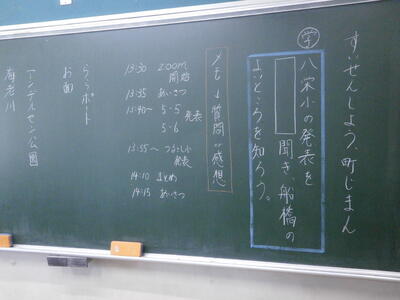 すいせんしよう、町じまん
学
八栄小の発表を
聞き、船橋の
よいところを知ろう。
メモ→質問 感想
13:30 ZOOM開始
13:35 あいさつ
13:40~ 5-5 発表
5-6
13:55~ 発表
14:10 まとめ
14:15 あいさつ
ららぽーと
お面
アンデルセン公園
海老川